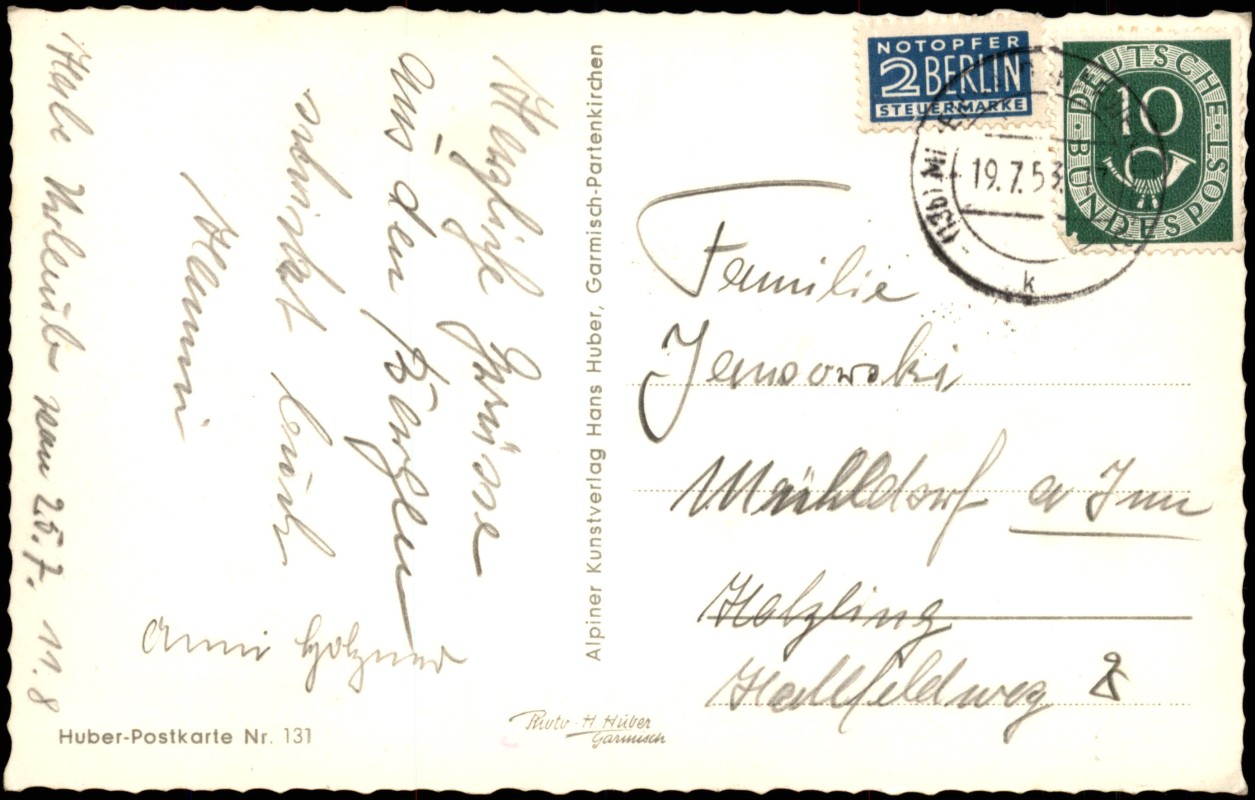 Habe Urlaub von 25.7. 11.8
Herzliche Grüsse
aus den Bergen
schickt euch
Hermi
Anni Holzner
Huber-Postkarte Nr. 131
Alpiner Kunstverlag Hans Huber, Garmisch-Partenkirchen
Photo-H Huber
Garmisch
NOTOPFER
2 BERLIN
STEUERMARKE
DEUTSCHE BUNDESPOST
10
(13b)
19.7.53
k
Familie
Mühldorf a Inn
Holzling
8